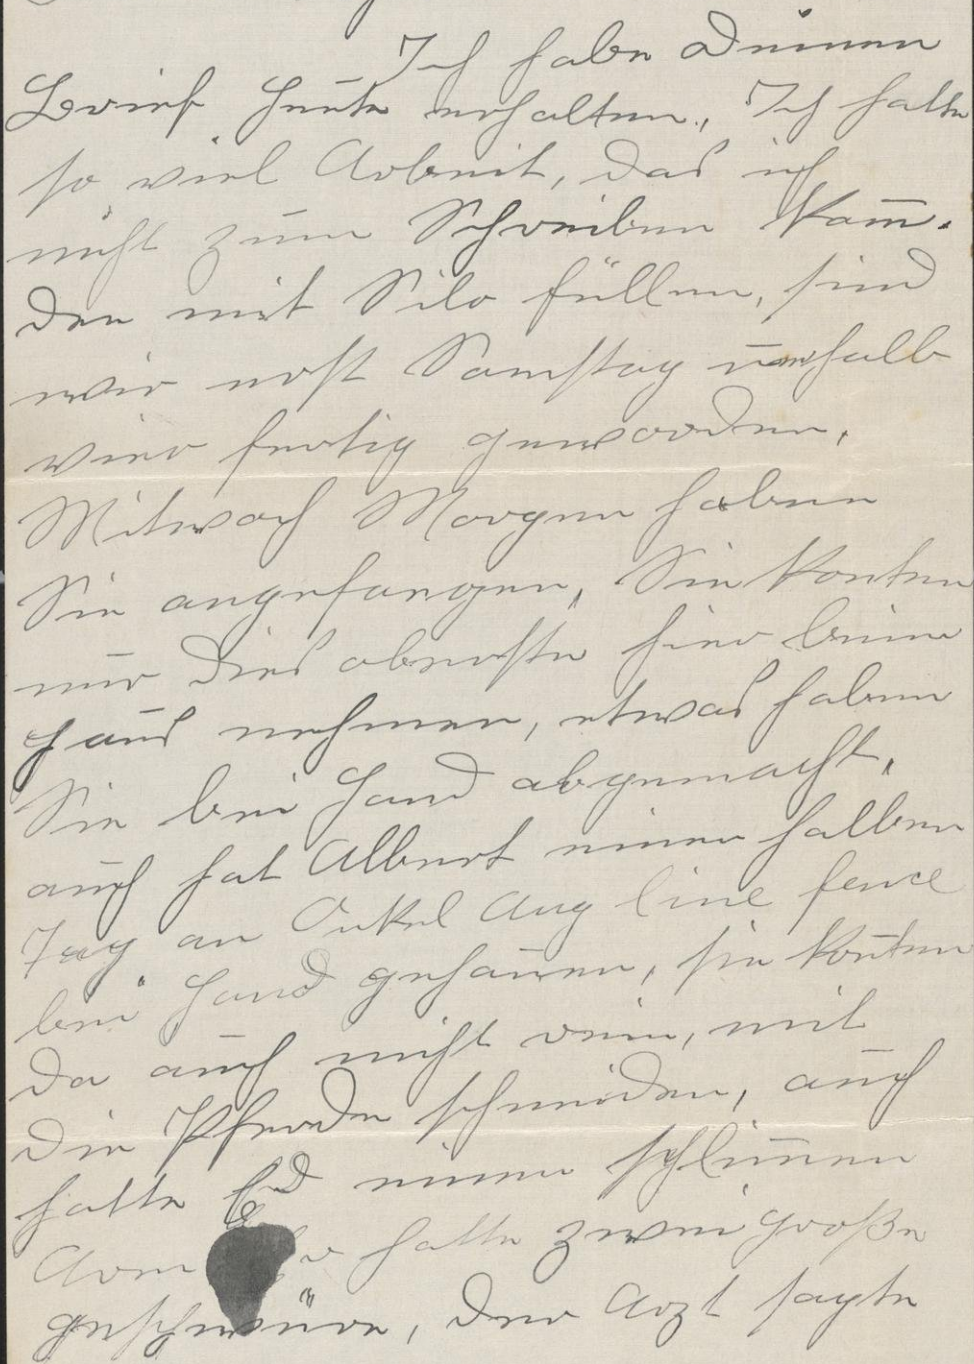 Ich habe Deinen
Brief heute erhalten, Ich hatte
so viel Arbeit, das ich
nicht zum Schreiben kam̄.
den mit Silo füllen, sind
wir erst Samstag um halb
vier fertig geworden.
Mitwoch Morgen haben
Sie angefangen, Sie konten
nur dies oberste hier beim
haus nehmen, etwas haben
Sie bei Hand abgemacht,
auch hat Albert einen halben
Tag an Onkel Aug line fence
bei Hand gehauen, sie kon̄ten
da auch nicht rein, mit
die Pferde schneiden, auch
hatte Ed einen schlim̄en
Arm Er hatte zwei große
geschwüre, der Arzt sagte